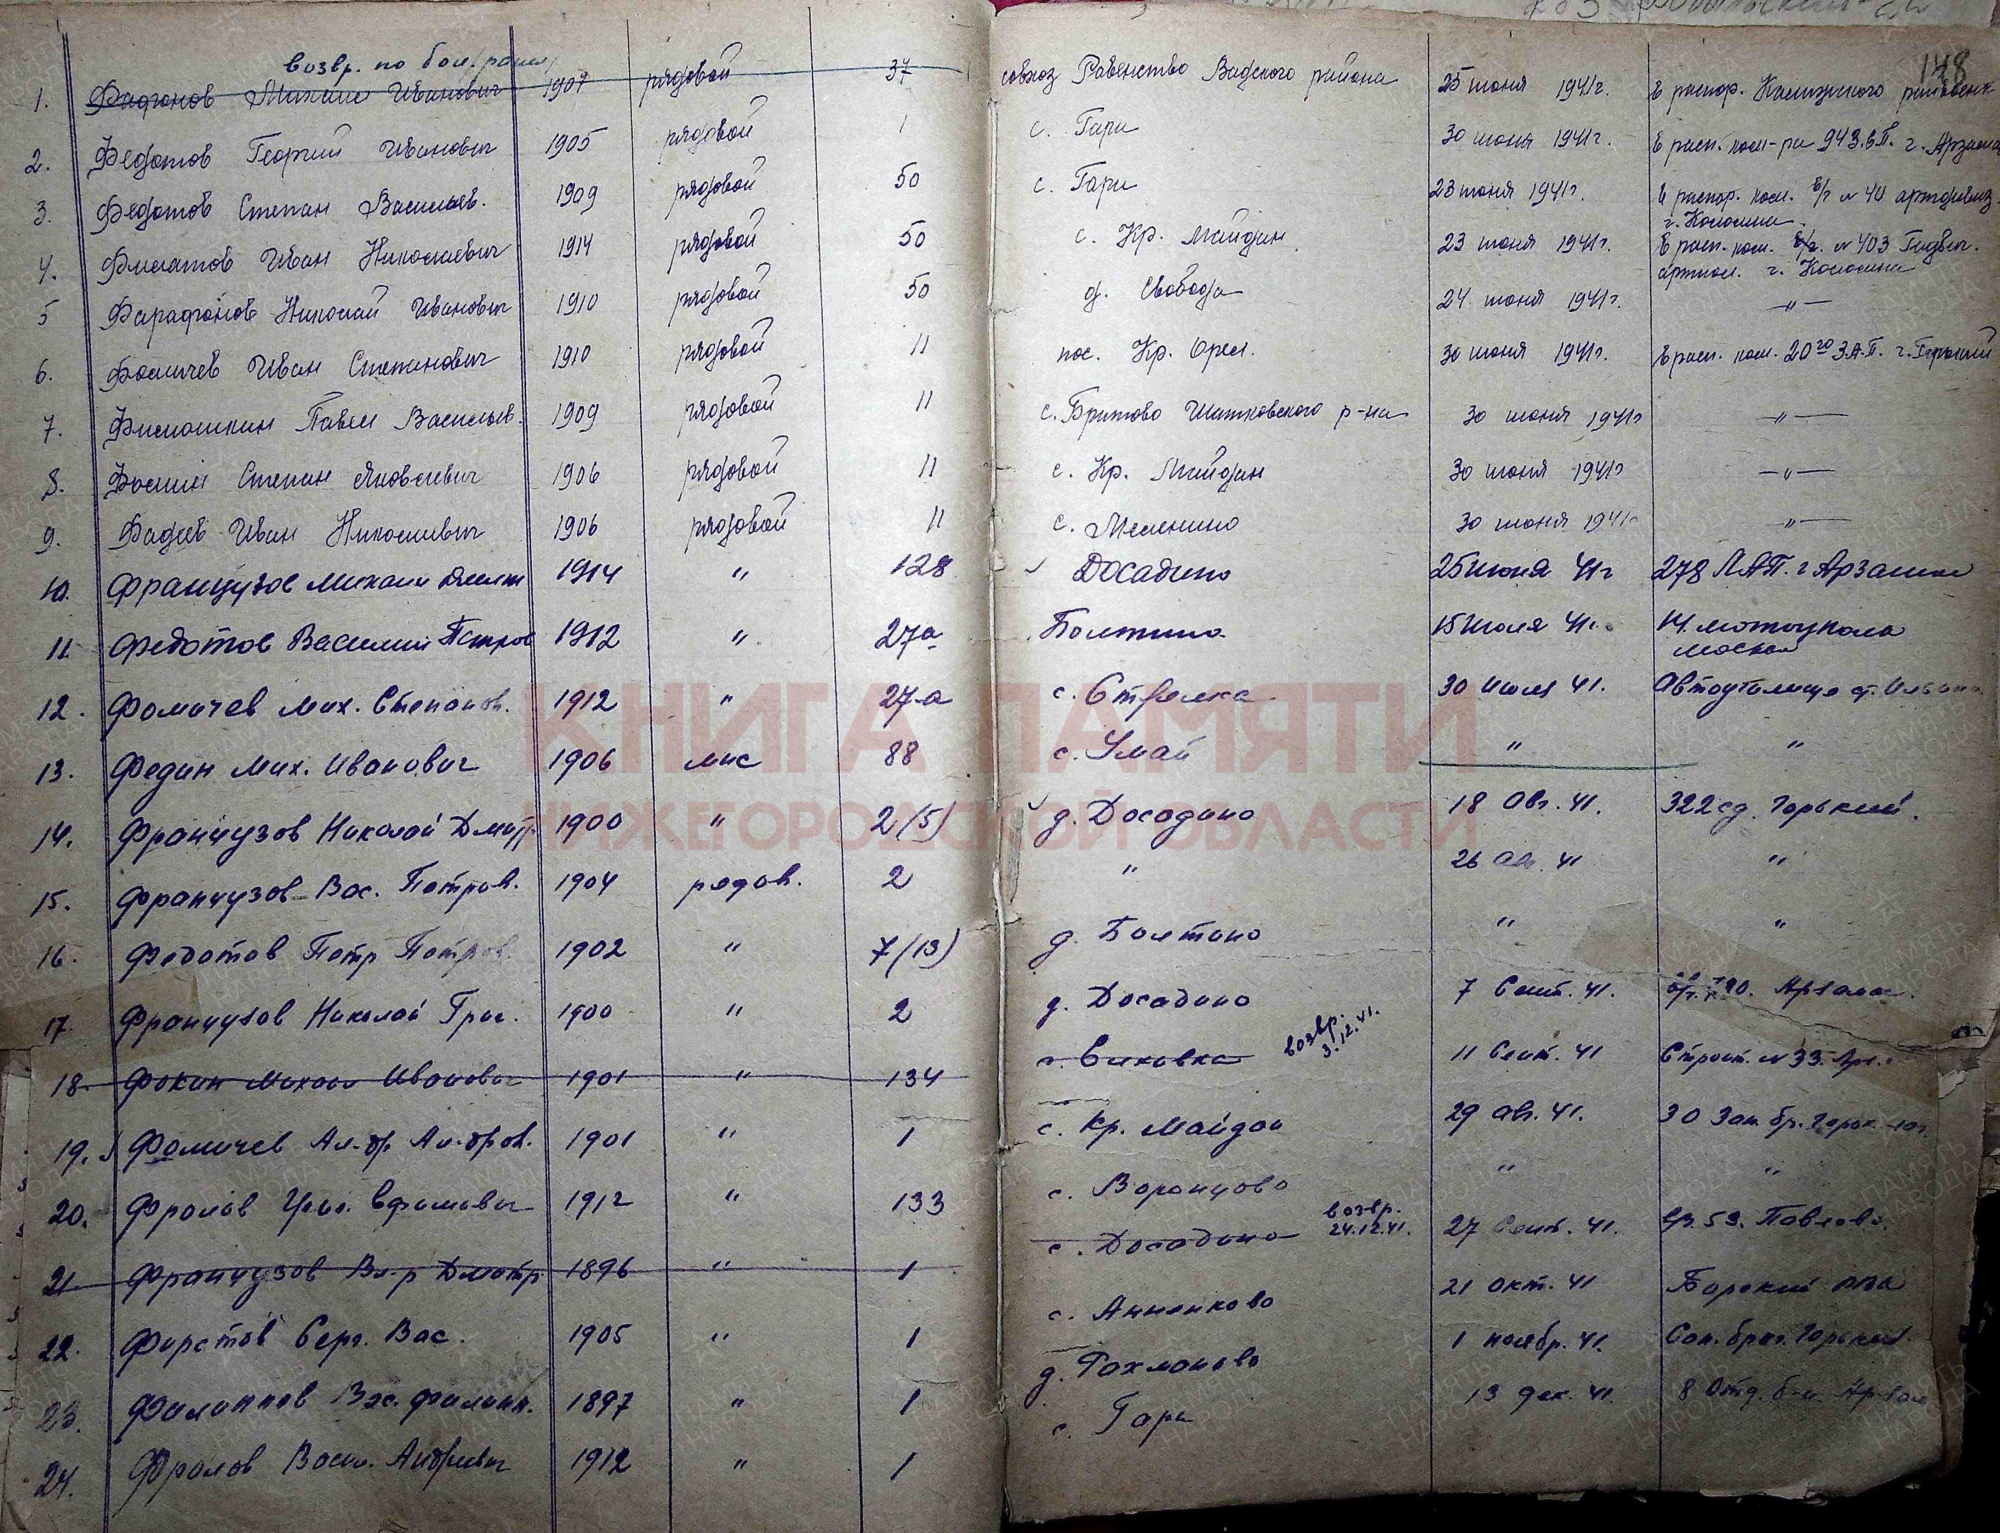 148
возвр. по бол.
1. Фадюнов Михаил Иванович 1907 рядовой 37 совхоз Равенство Вадского района 25 июня 1941г. В распор.
2. Федотов Георгий Иванович 1905 рядовой 1 с. Гари 30 июня 1941г. В расп. ком-ра 943. г. Арзамас
3. Федотов Степан Васильев. 1909 рядовой 50 с. Гари 23 июня 1941г. В распор. ком. в/г № 40 артдивиз.
г. Коломна
4. Филатов Иван Николаевич 1914 рядовой 50 с. Кр. Майдан 23 июня 1941г. В расп. ком. в/г. № 403
артпол. г. Коломна
5 Фарафонов Николай Иванович 1910 рядовой 50 д. Свобода 24 июня 1941г. —"—
6. Фомичев Иван Степанович 1910 рядовой 11 пос. Кр. Орел. 30 июня 1941г. В расп. ком. 20го З.А.П. г. Горький
7. Филюшкин Павел Васильев. 1909 рядовой 11 с. Шатковского р-на 30 июня 1941г —"—
8. Фомин Степан Яковлевич 1906 рядовой 11 с. Кр. Майдан 30 июня 1941г —"—
9. Фадеев Иван Николаевич 1906 рядовой 11 с. 30 июня 1941г —"—
10. Французов Михаил 1914 " 128 Досадино 25 июня 41г 278 ЛАП. г Арзамас
11. Федотов Василий Петров 1912 " 27а Болтино 15 июля 41г. 14.
Москва
12. Фомичев Мих. Степанов. 1912 " 27-а с. Стрелка 30 июля 41. Автоучилище ст.
13. Федин Мих. Иванович 1906 мис 88 с. Умай " "
14. Французов Николай Дмитр. 1900 " 2(5) д. Досадино 18 Авг. 41. 322 сд. Горький.
15. Французов Вас. Петров. 1904 рядов. 2 " 26 Авг. 41 "
16. Федотов Петр Петров. 1902 " 7(13) д. Болтино " "
17 Французов Николай Григ. 1900 " 2 д. Досадино 7 Сент. 41. Арзамас.
18. Фокин Михаил Иванович 1901 " 134 возвр. 3.12.41. 11 Сент. 41 Строит. № 33.
19. Фомичев Ал-др. Ал-дров. 1901 " 1 с. Кр. Майдан 29 Авг. 41. 30 Зап. бр.
20. Фролов Григ. Ефимович 1912 " 133 с. Воронцово " "
21 Французов Вл-р Дмитр. 1896 " 1 с. Досадино возвр. 24.12.41. 27 Сент. 41. 59. Павлово.
22. Фирстов Серг. Вас. 1905 " 1 с. Анненково 21 Окт. 41
23. Филиппов Вас. Филипп. 1897 " 1 д. Рахманово 1 ноябр. 41. Горький.
24. Фролов Васил. Андреевич 1912 " 1 с. Гари 13 дек. 41. 8 Отд. б-н.
КНИГА ПАМЯТИ
НИЖЕГОРОДСКОЙ ОБЛАСТИ
ПАМЯТЬ НАРОДА